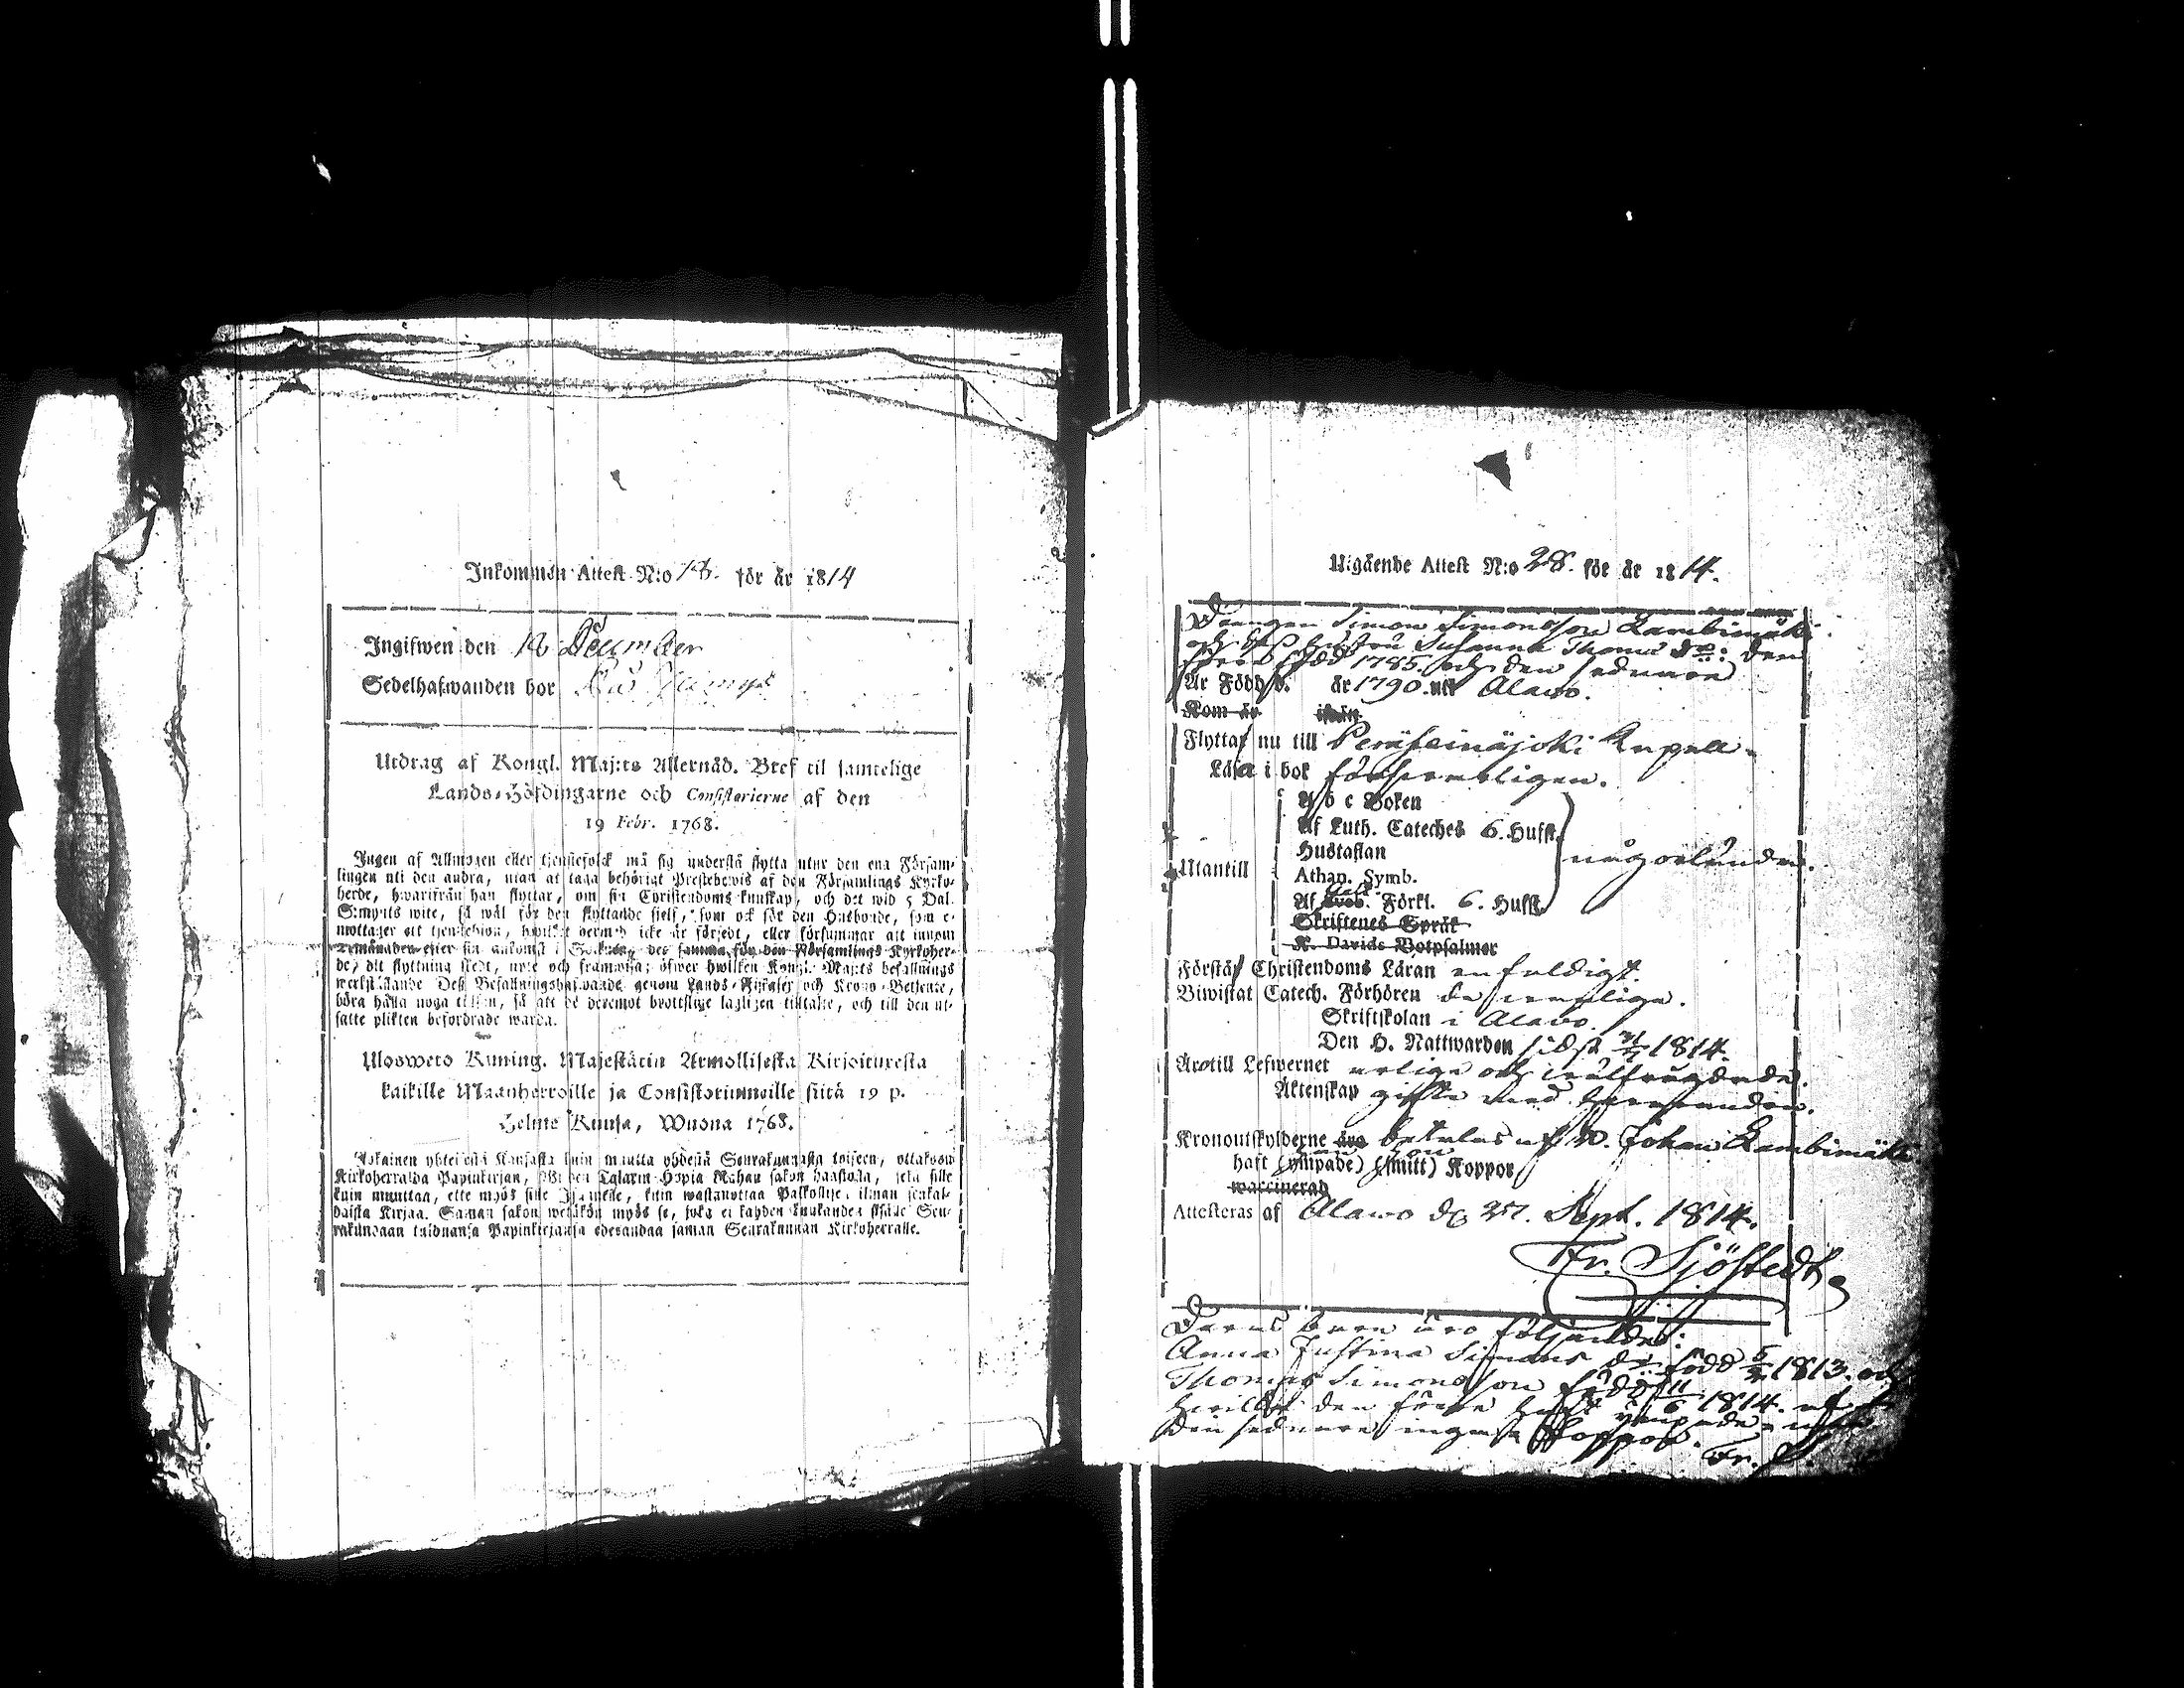 Inkommen Attest N:o 18. för år 1814
Ingifwen den 18 December
Sedelhafwanden bor
Utdrag af Kongl. Maj:ts Allernåd. Bref til samtelige
Lands-Höfdingarne och Consistorierne af den
19 Febr. 1768.
Ingen af Allmogen eller tjenstefolck må sig understå flytta utur den ena Försam-
lingen uti den andra, utan at taga behörigt Prestebewis af den Församlings Kyrko-
herde, hwarifrån han flyttar, om sin Christendoms kunskap, och det wid 5 Dal.
S:mynts wite, så wäl för den flyttande sjelf, som ock för den Husbonde, som e-
mottager ett tjenstehion, hwilket dermed icke är försedt, eller försummar att innom
twemånader efter sin ankomst i Socknen det samma för den Församlings Kyrkoher-
de, dit flyttning skedt, upte och framwisa; öfwer hwilken Kongl. Maj:ts befallnings
werkställande Dess Befallningshafwande genom Lands-Fiskaler och Krono-Betjente,
böra hålla noga tilsyn, så att de deremot brottslige lagligen tilltalte, och till den ut-
satte plikten befordrade warda.
Ulosweto Kuning. Majestätin Armollisesta Kirjoituxesta
kaikille Maanherroille ja Consistoriumeille siitä 19 p.
Helme Kuusa, Wuona 1768.
Jokainen yhteisestä Kansasta kuin muutta yhdestä Seurakunnasta toiseen, ottakoon
Kirkoherralda Papinkirjan, Wiiden Talarin Hopia Rahan sakon haastolla, sekä sille
kuin muuttaa, ette myös sille Isännelle, kuin wastanottaa Palkollise, ilman senkal-
daista Kirjaa. Saman sakon wetäkön myös se, joka ei kahden kuukauden sisälle Seu-
rakundaan tulduansa Papinkirjaansa edesandaa saman Seurakunnan Kirkoherralle.
Utgående Attest N:o 28. för år 1814.
Drengen Simon Simonsson Lambimäki
och dess hustru Susanna Thomæ d:r: den
förre född 1785. och den sednare
Är Född d. år 1790. uti Alavo.
Kom år ifrån
Flyttar nu till Peräseinäjoki Capell.
Läsa i bok försvarligen.
A b c Boken
Af Luth. Cateches 6. Hufst.
Hustaflan
Utantill
Athan. Symb.
någorlunda.
Af Sveb. Förkl. 6. Hufst.
Skriftenes Språk
K. Davids Botpsalmer
Förstår Christendoms Läran enfaldigt.
Biwistat Catech. Förhören
Skriftskolan i Alavo.
Den H. Nattwarden sidst 1814.
Äro till Lefwernet ärlige och wälfrägdade.
Äktenskap gifte med hwarandra.
Kronoutskylderne betalas af B. Johan Lambimäki
haft (ympade) (smitt) Koppor
waccinerad
Attesteras af Alavo d. 27. Sept. 1814.
Fr. Sjöstedt
Deras barn äro följande:
Anna Justina Simons dr född 5/2 1813. och
Thomas Simonsson född 11/6 1814. af
hvilka den förra haft ympade, men
den sednare inga Koppor. Fr. S.